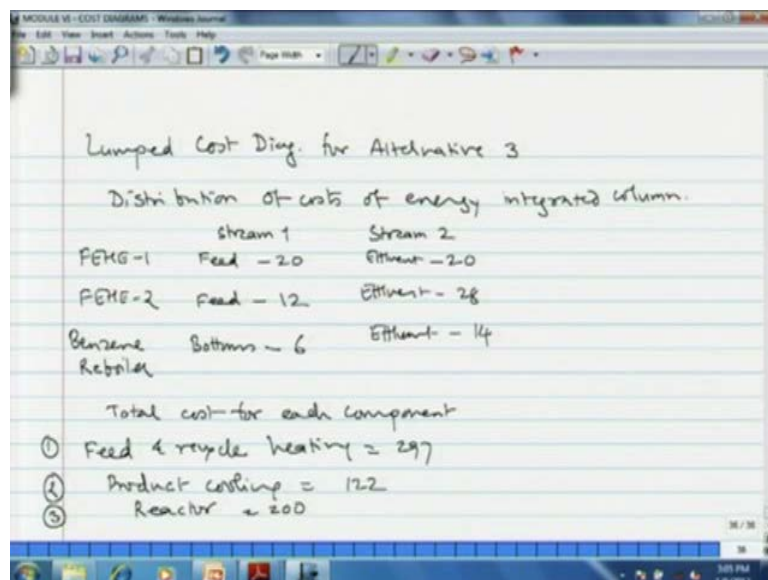 MODULE VI - COST DIAGRAMS - Windows Journal
File Edit View Insert Actions Tools Help
Page Width
Lumped Cost Diag. for Alternative 3
Distribution of costs of energy integrated column.
Stream 1 Stream 2
FEHE-1 Feed - 20 Effluent - 20
FEHE-2 Feed - 12 Effluent - 28
Benzene Bottoms - 6 Effluent - 14
Reboiler
Total cost for each component
① Feed & recycle heating = 297
② Product cooling = 122
③ Reactor = 200
36 / 36
36
3:05 PM